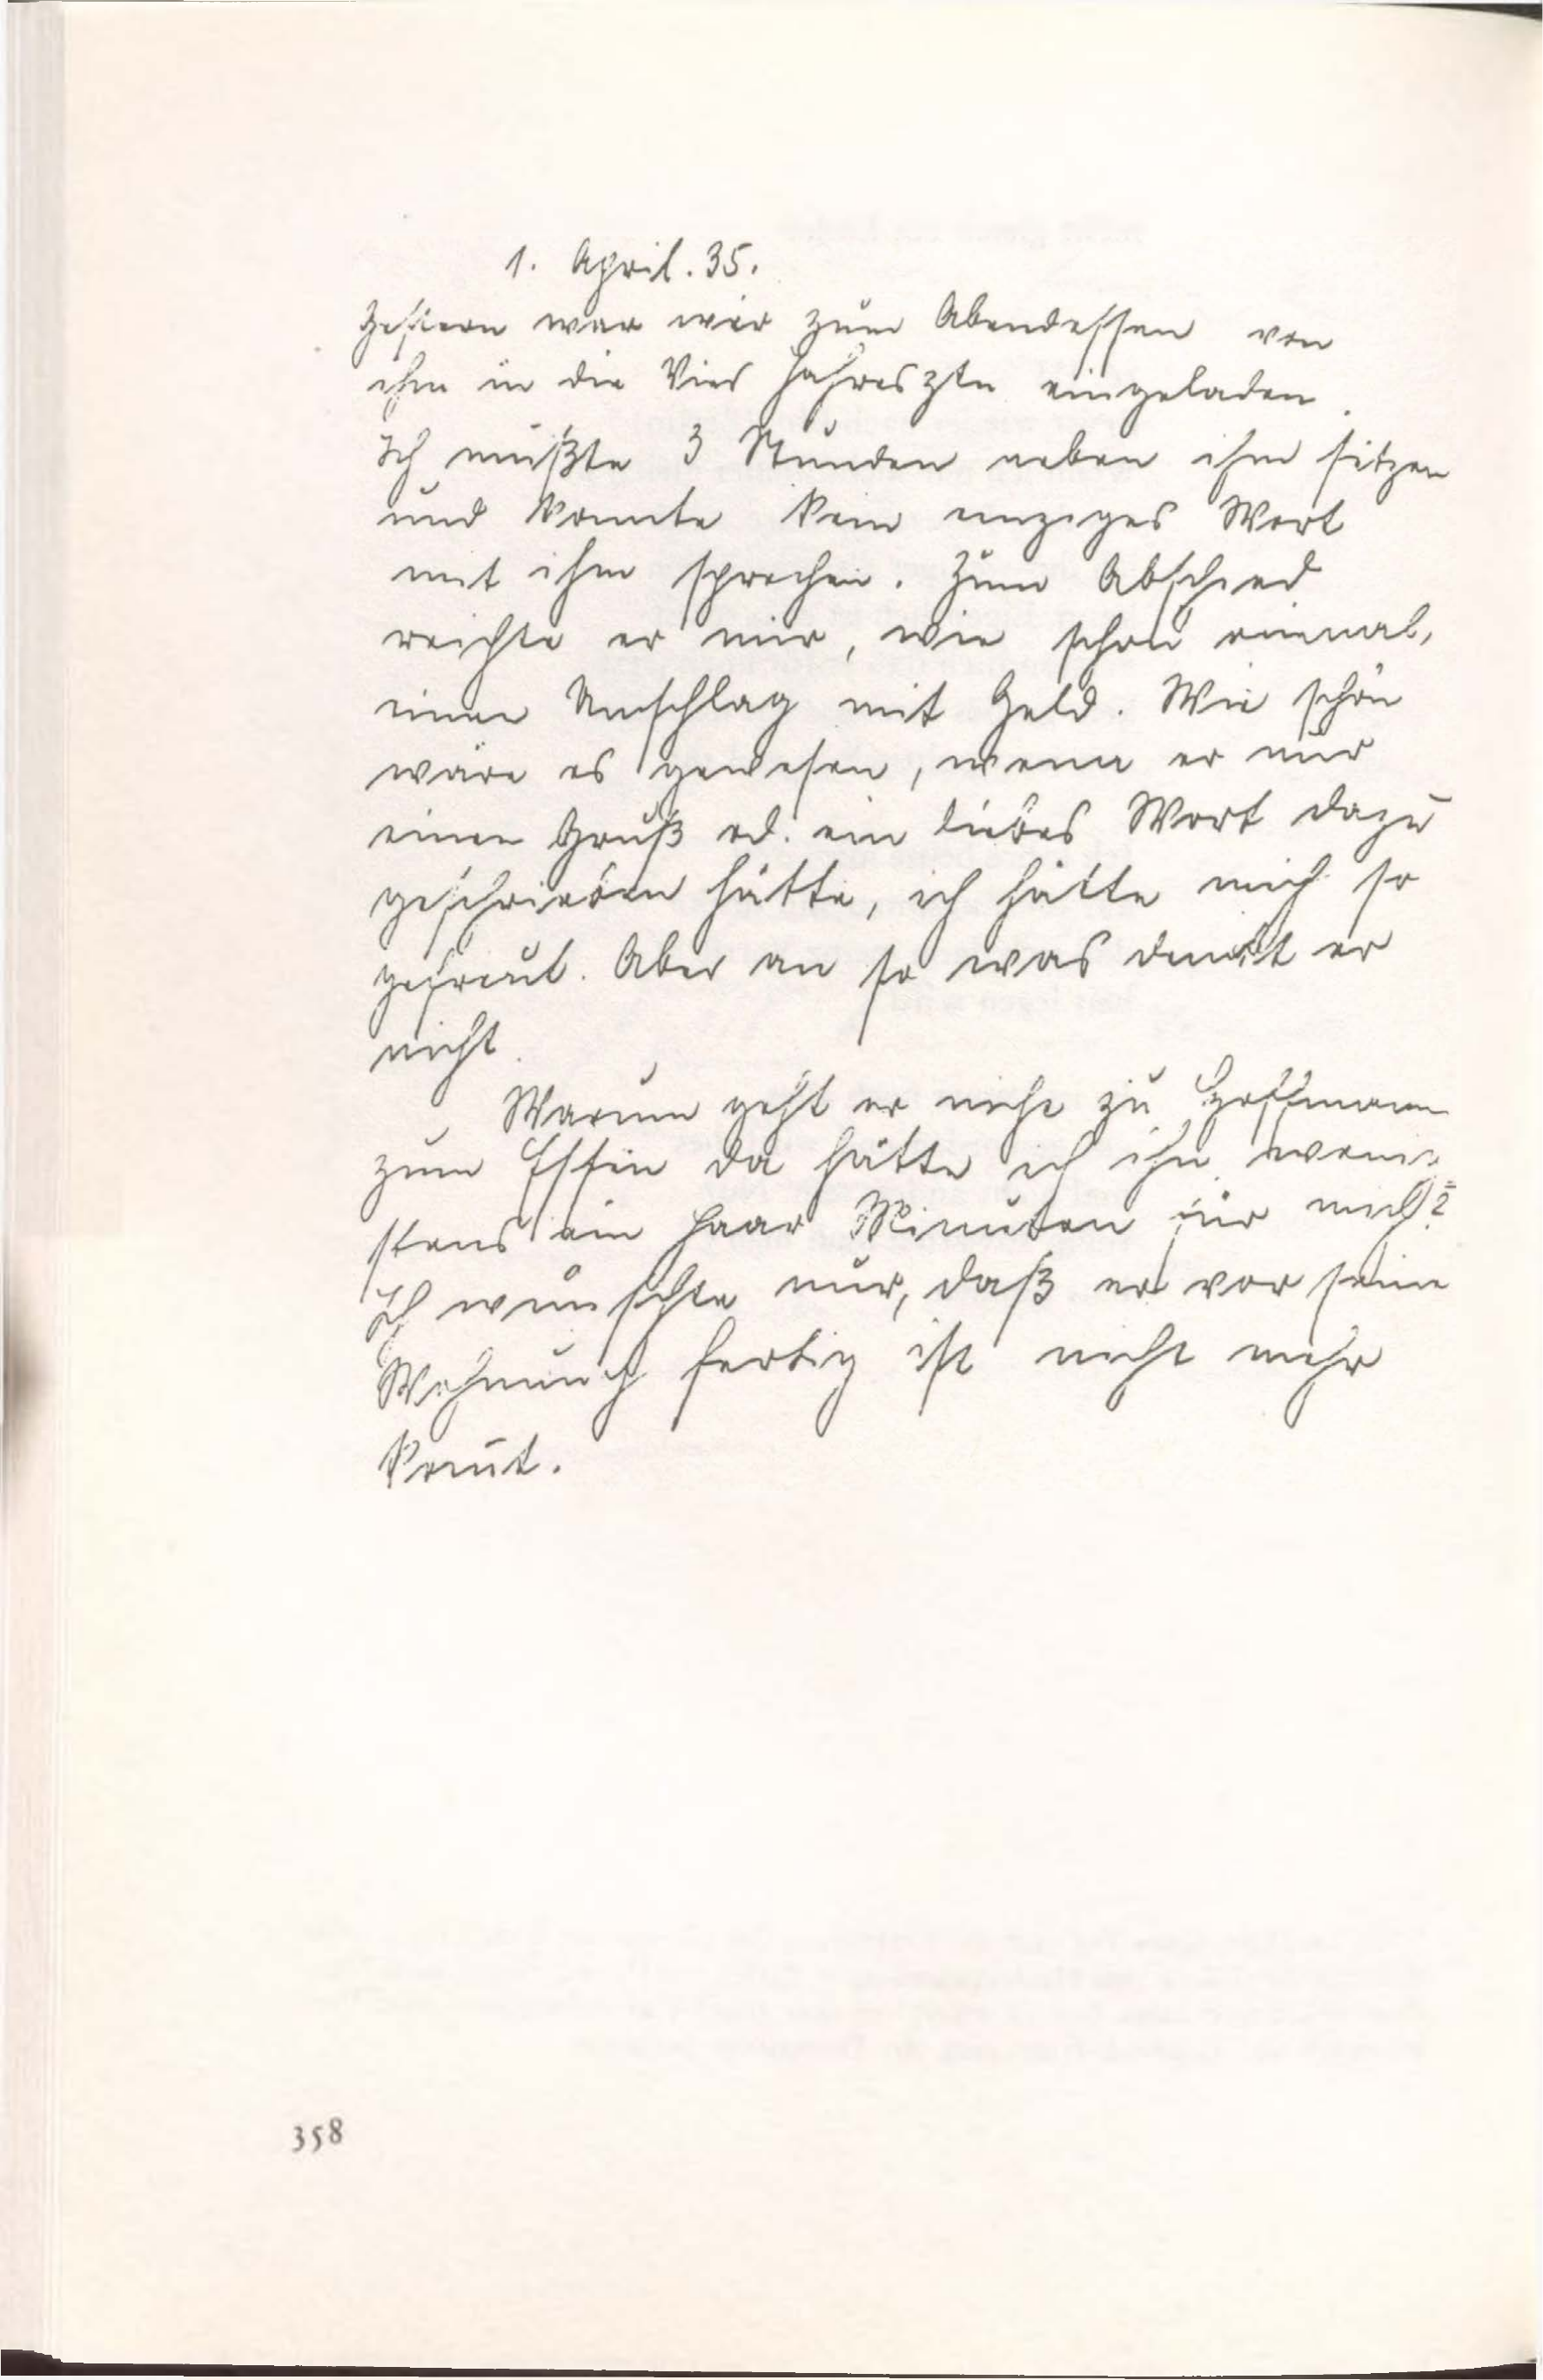 1. April. 35.
Gestern war wir zum Abendessen von
ihm in die Vier Jahresztn eingeladen.
Ich mußte 3 Stunden neben ihm sitzen
und konnte kein einziges Wort
mit ihm sprechen. Zum Abschied
reichte er mir, wie schon einmal,
einen Umschlag mit Geld. Wie schön
wäre es gewesen, wenn er nur
einen Gruß od. ein liebes Wort dazu
geschrieben hätte, ich hätte mich so
gefreut. Aber an so was denkt er
nicht.
Warum geht er nicht zu Hoffmann
zum Essen da hätte ich ihn wenig
stens ein paar Minuten für mich?
Ich wünschte nur, daß er vor seine
Wohnung fertig ist nicht mehr
komt.
358